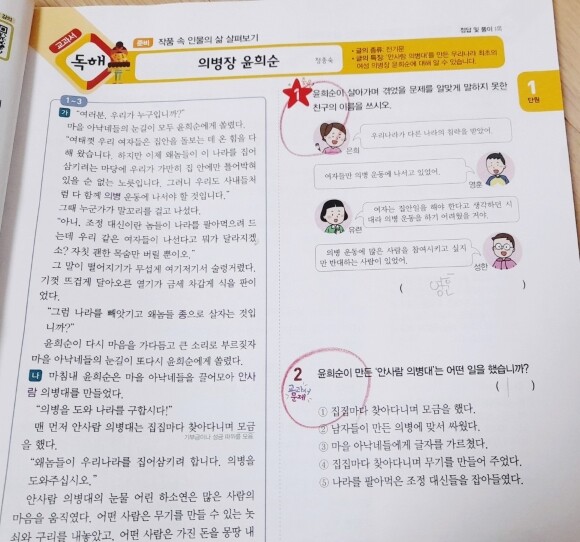 교과서
독해
준비 작품 속 인물의 삶 살펴보기
의병장 윤희순
정종숙
정답 및 풀이 1쪽
• 글의 종류: 전기문
• 글의 특징: '안사람 의병대'를 만든 우리나라 최초의
여성 의병장 윤희순에 대해 알 수 있습니다.
1
단원
1~3
가 "여러분, 우리가 누구입니까?"
마을 아낙네들의 눈길이 모두 윤희순에게 쏠렸다.
"여태껏 우리 여자들은 집안을 돌보는 데 온 힘을 다
해 왔습니다. 하지만 이제 왜놈들이 이 나라를 집어
삼키려는 마당에 우리가 가만히 집 안에만 틀어박혀
있을 순 없는 노릇입니다. 그러니 우리도 사내들처
럼 다 함께 의병 운동에 나서야 할 것입니다."
그때 누군가가 말꼬리를 걸고 나섰다.
"아니, 조정 대신이란 놈들이 나라를 팔아먹으려 드
는데 우리 같은 여자들이 나선다고 뭐가 달라지겠
소? 자칫 괜한 목숨만 버릴 뿐이오."
그 말이 떨어지기가 무섭게 여기저기서 술렁거렸다.
기껏 뜨겁게 달아오른 열기가 금세 차갑게 식을 판이
었다.
"그럼 나라를 빼앗기고 왜놈들 종으로 살자는 것입
니까?"
윤희순이 다시 마음을 가다듬고 큰 소리로 부르짖자
마을 아낙네들의 눈길이 또다시 윤희순에게 쏠렸다.
나 마침내 윤희순은 마을 아낙네들을 끌어모아 안사
람 의병대를 만들었다.
"의병을 도와 나라를 구합시다!"
맨 먼저 안사람 의병대는 집집마다 찾아다니며 모금
을 했다.
기부금이나 성금 따위를 모음.
"왜놈들이 우리나라를 집어삼키려 합니다. 의병을
도와주십시오."
안사람 의병대의 눈물 어린 하소연은 많은 사람의
마음을 움직였다. 어떤 사람은 무기를 만들 수 있는 놋
쇠와 구리를 내놓았고, 어떤 사람은 가진 돈을 몽땅 내
1 윤희순이 살아가며 겪었을 문제를 알맞게 말하지 못한
친구의 이름을 쓰시오.
우리나라가 다른 나라의 침략을 받았어.
은희
여자들만 의병 운동에 나서고 있었어.
영훈
여자는 집안일을 해야 한다고 생각하던 시
대라 의병 운동을 하기 어려웠을 거야.
유련
의병 운동에 많은 사람을 참여시키고 싶지
만 반대하는 사람이 있었어.
성한
( 영훈 )
2 윤희순이 만든 '안사람 의병대'는 어떤 일을 했습니까?
교과서
문제
( 1 )
① 집집마다 찾아다니며 모금을 했다.
② 남자들이 만든 의병에 맞서 싸웠다.
③ 마을 아낙네들에게 글자를 가르쳤다.
④ 집집마다 찾아다니며 무기를 만들어 주었다.
⑤ 나라를 팔아먹은 조정 대신들을 잡아들였다.